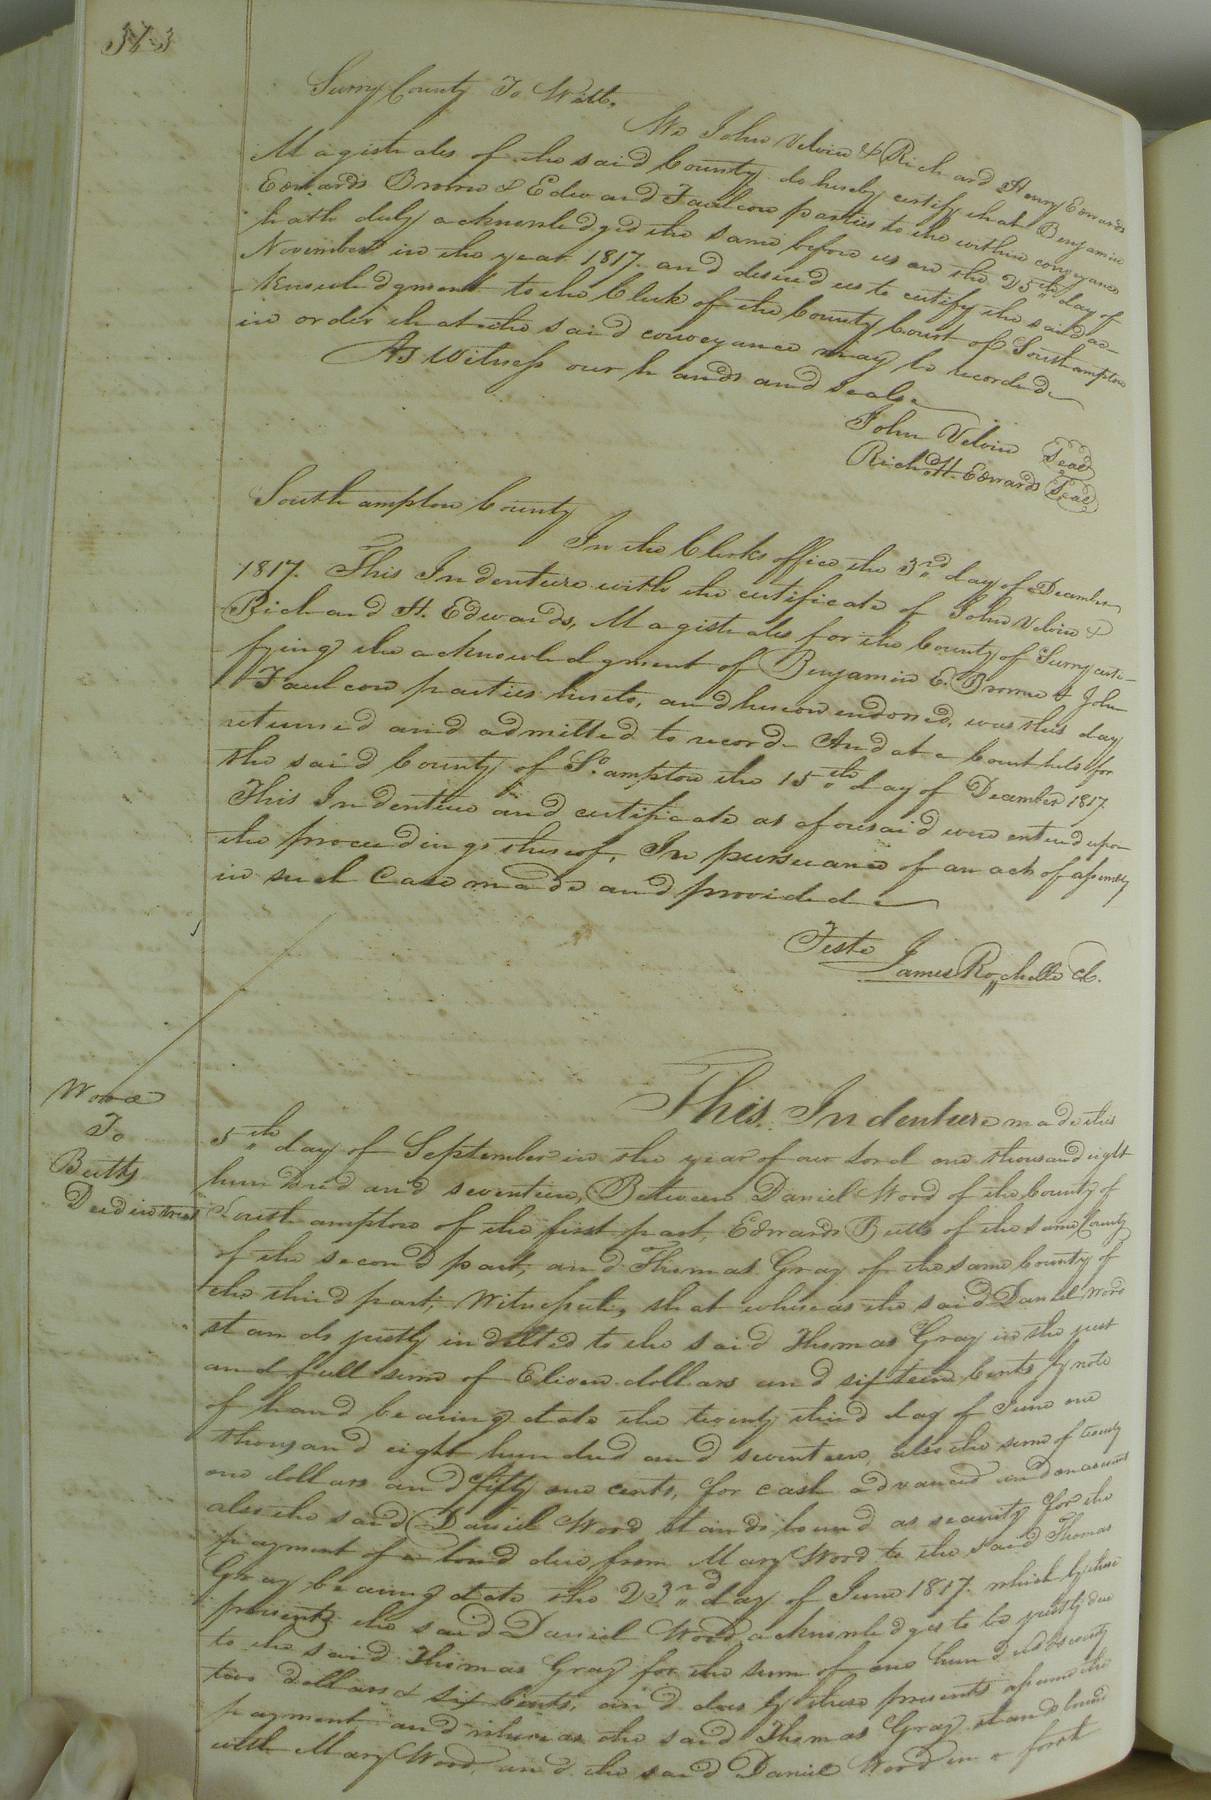 373
Surry County To Witt,
We John Velvin & Richard Henry Edwards
Magistrates of the said County do hereby certify that Benjamin
Edwards Browne & Edward Faulcon parties to the within conveyance
hath duly acknowledged the same before us on the 25th day of
November in the year 1817 and desired us to certify the said ac-
knowledgment to the Clerk of the County Court of Southampton
in order that the said conveyance may be recorded
As Witness our hands and seals
John Velvin Seal
Richd. H. Edwards Seal
Southampton County
In the Clerks office the 3rd day of December
1817. This Indenture with the certificate of John Velvin &
Richard H. Edwards, Magistrates for the County of Surry certi-
fying the acknowledgment of Benjamin E. Browne & John
Faulcon parties hereto, and hereon endorsed, was this day
returned and admitted to record. And at a Court held for
the said County of So.ampton the 15th day of December 1817.
This Indenture and certificate as aforesaid were entered upon
the proceedings thereof, In pursuance of an act of assembly
in such Case made and provided
Teste
James Rochelle Cl.
Word
To
Butts
Deed in trust
This Indenture made this
5th day of September in the year of our Lord one thousand eight
hundred and seventeen, Between Daniel Word of the County of
Southampton of the first part, Edwards Butts of the same County
of the second part, and Thomas Gray of the same County of
the third part, Witnesseth, that whereas the said Daniel Word
stands justly indebted to the said Thomas Gray in the just
and full sum of Eleven dollars and sixteen Cents by note
of hand bearing date the twenty third day of June one
thousand eight hundred and seventeen, also the sum of twenty
one dollars and fifty one cents, for cash advanced and on account
also the said Daniel Word stands bound as security for the
payment of a bond due from Mary Word to the said Thomas
Gray bearing date the 23rd day of June 1817. which by these
presents the said Daniel Word acknowledges to be justly due
to the said Thomas Gray for the sum of one hundred & seventy
two dollars & six Cents, and does by these presents assume the
payment and whereas the said Thomas Gray stands bound
with Mary Word, and the said Daniel Word in a forth